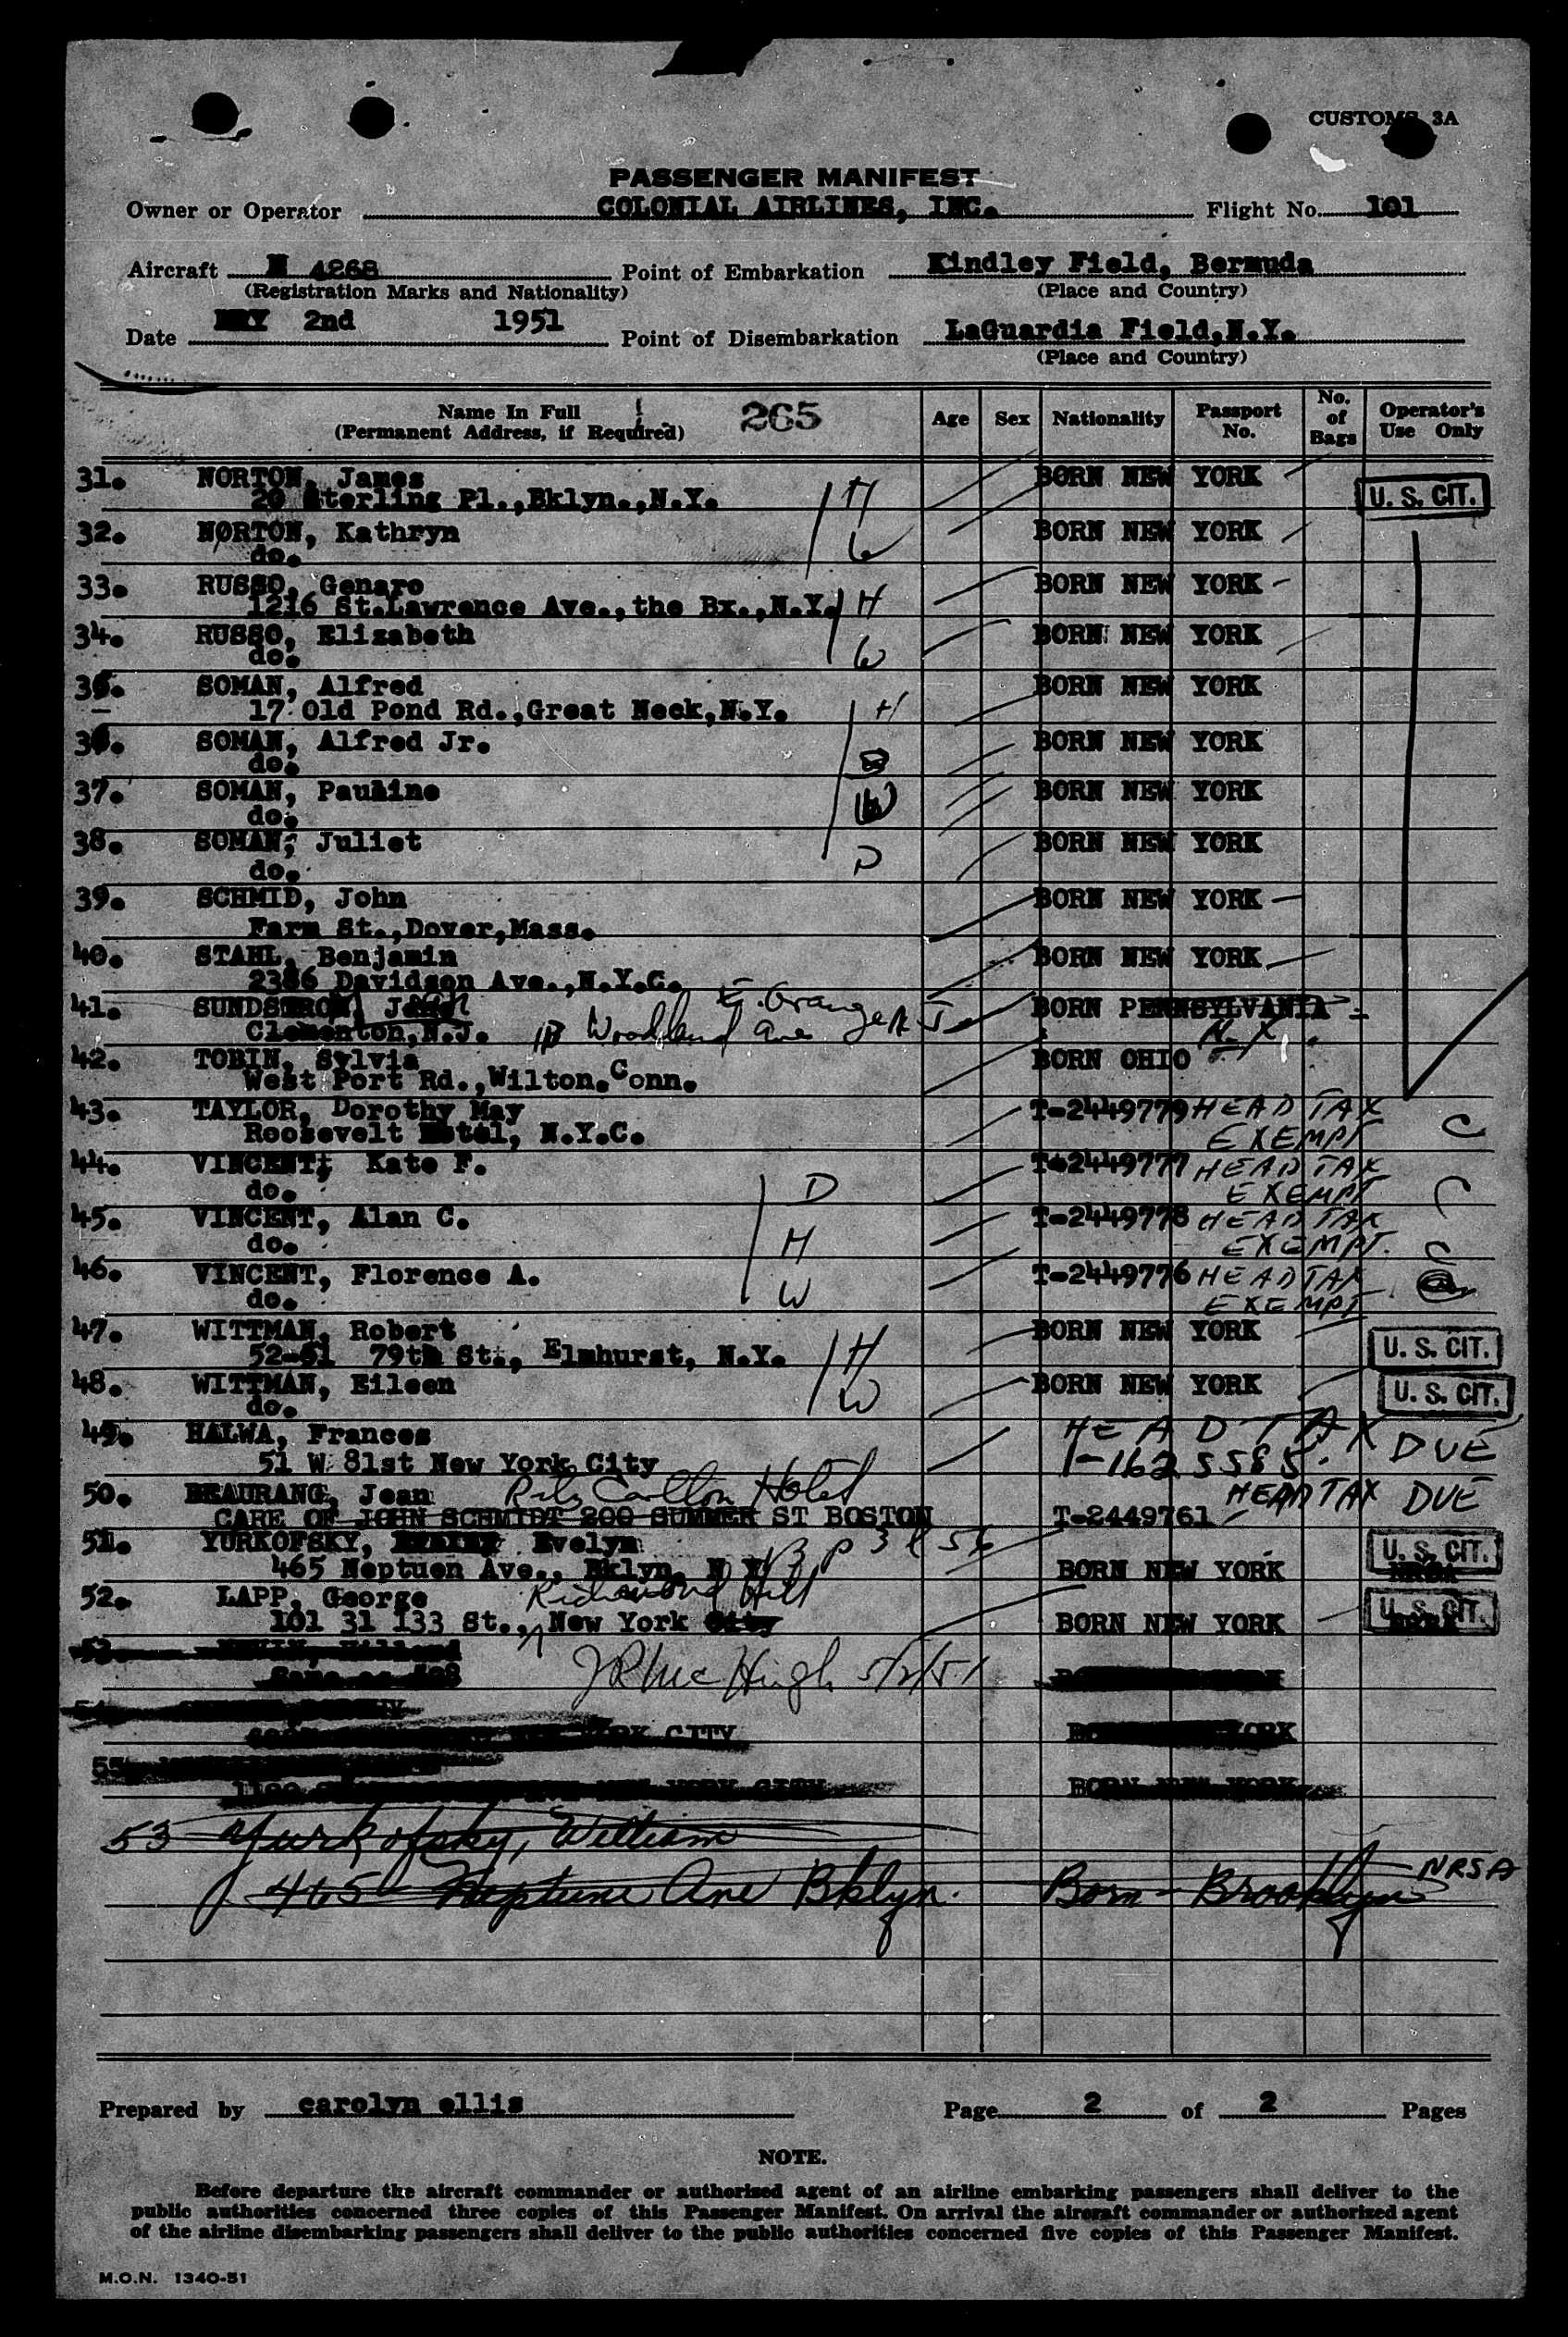 CUSTOMS 3A
PASSENGER MANIFEST
Owner or Operator COLONIAL AIRLINES, INC. Flight No. 101
Aircraft N 4268 Point of Embarkation Kindley Field, Bermuda
(Registration Marks and Nationality) (Place and Country)
Date MAY 2nd 1951 Point of Disembarkation LaGuardia Field,N.Y.
(Place and Country)
Name In Full 265 Age Sex Nationality Passport No. No. of Bags Operator's Use Only
(Permanent Address, if Required)
31. NORTON, James BORN NEW YORK
20 Sterling Pl.,Bklyn.,N.Y. H U. S. CIT.
32. NORTON, Kathryn BORN NEW YORK
do. W
33. RUSSO, Genaro BORN NEW YORK
1216 St.Lawrence Ave.,the Bx.,N.Y. H
34. RUSSO, Elizabeth BORN NEW YORK
do. W
35. SOMAN, Alfred BORN NEW YORK
17 Old Pond Rd.,Great Neck,N.Y. H
36. SOMAN, Alfred Jr. BORN NEW YORK
do.
37. SOMAN, Pauline BORN NEW YORK
do. W
38. SOMAN, Juliet BORN NEW YORK
do. D
39. SCHMID, John BORN NEW YORK
Farm St.,Dover,Mass.
40. STAHL, Benjamin BORN NEW YORK
2386 Davidson Ave.,N.Y.C.
41. SUNDSTROM, E. Orange N J BORN PENNSYLVANIA
Clementon,N.J. Woodland Ave N.Y.
42. TOBIN, Sylvia BORN OHIO
West Port Rd.,Wilton.Conn.
43. TAYLOR, Dorothy May T-2449779 HEAD TAX
Roosevelt Hotel, N.Y.C. EXEMPT C
44. VINCENT, Kate F. T-2449777 HEAD TAX
do. D EXEMPT C
45. VINCENT, Alan C. T-2449778 HEAD TAX
do. H EXEMPT. C
46. VINCENT, Florence A. T-2449776 HEAD TAX
do. W EXEMPT
47. WITTMAN, Robert BORN NEW YORK
52-51 79th St., Elmhurst, N.Y. H U. S. CIT.
48. WITTMAN, Eileen BORN NEW YORK U. S. CIT.
do. W
49. HALWA, Frances HEAD TAX DUE
51 W 81st New York City I-1625585
50. BEAURANG, Jean Ritz Carlton Hotel HEAD TAX DUE
CARE OF JOHN SCHMIDT 200 SUMMER ST BOSTON T-2449761
51. YURKOFSKY, Evelyn U. S. CIT.
465 Neptuen Ave., Bklyn, N Y BORN NEW YORK
52. LAPP, George Richmond Hill
101 31 133 St., New York City BORN NEW YORK U. S. CIT.
5/2/51
YORK CITY
BORN NEW YORK
53 Yurkofsky, William
465 Neptune Ave Bklyn. Born - Brooklyn NRSA
Prepared by carolyn ellis Page 2 of 2 Pages
NOTE.
Before departure the aircraft commander or authorized agent of an airline embarking passengers shall deliver to the
public authorities concerned three copies of this Passenger Manifest. On arrival the aircraft commander or authorized agent
of the airline disembarking passengers shall deliver to the public authorities concerned five copies of this Passenger Manifest.
M.O.N. 1340-51